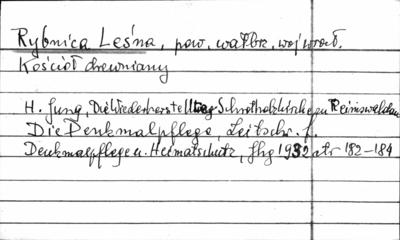 Rybnica Leśna, pow. wałbrz. woj. wrocł.
Kościół drewniany
H. Jung, Die Wiederherstellung Schrotholzkirche zu Reimswaldau
Die Denkmalpflege, Zeitschr. f.
Denkmalpflege u. Heimatschutz, Jhg 1932 str 182-184